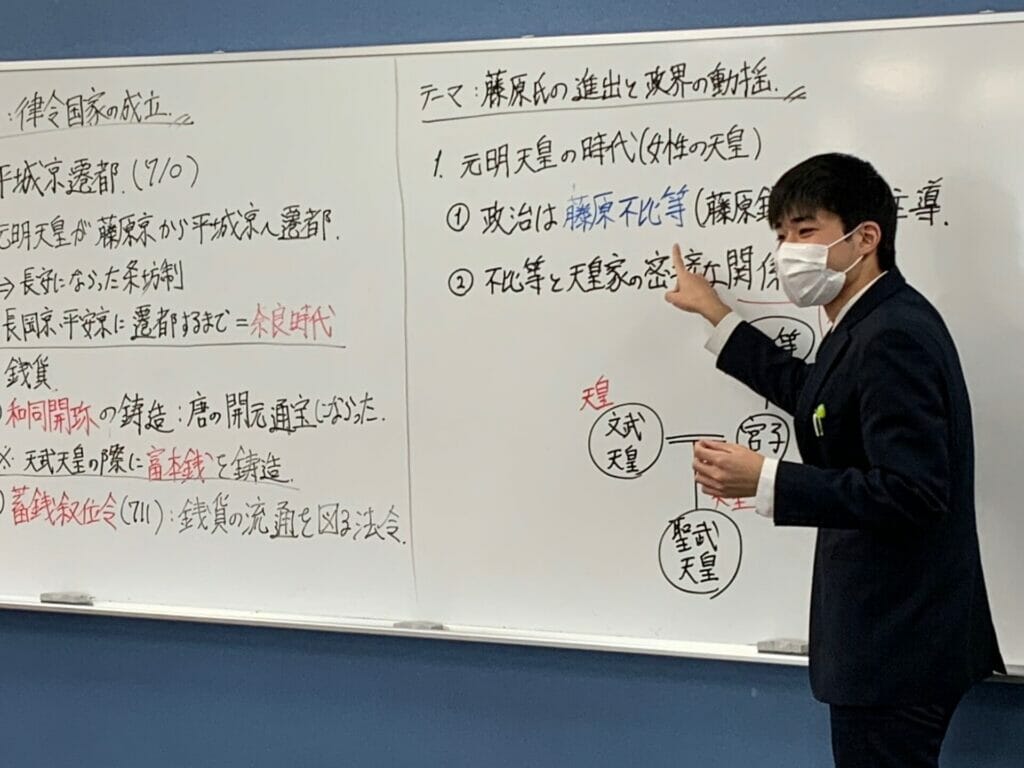 ：律令国家の成立.
平城京遷都.(710)
元明天皇が藤原京から平城京へ遷都.
⇒長安にならった条坊制
長岡京・平安京に遷都するまで＝奈良時代
銭貨
和同開珎の鋳造：唐の開元通宝にならった.
※ 天武天皇の際に富本銭を鋳造
蓄銭叙位令(711)：銭貨の流通を図る法令.
テーマ：藤原氏の進出と政界の動揺.
1. 元明天皇の時代(女性の天皇)
① 政治は藤原不比等(藤原 主導.
② 不比等と天皇家の密接な関係
等
天皇
文武
天皇
宮子
聖武
天皇